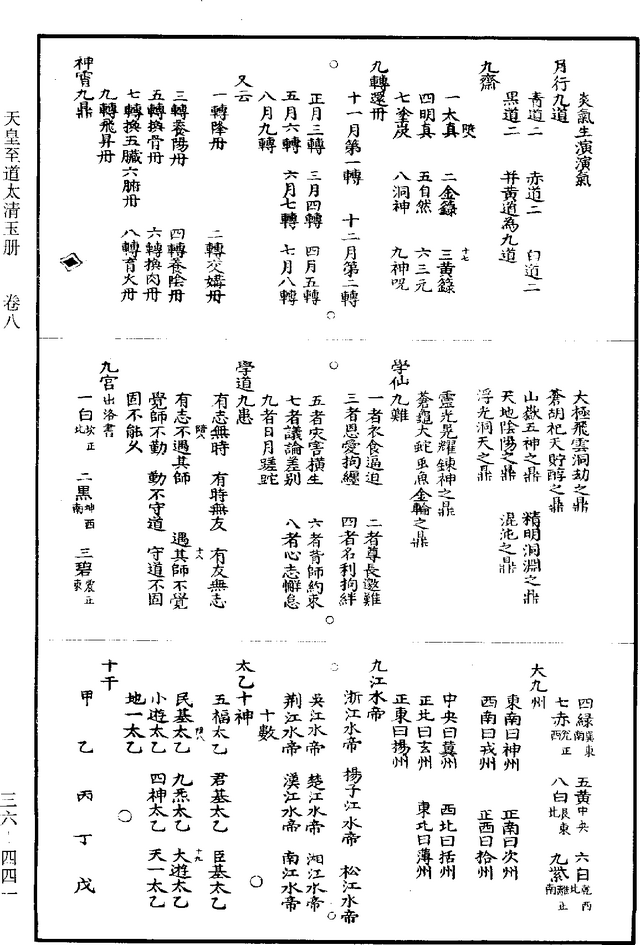 天皇至道太清玉册　卷八
炎氣生演演氣
月行九道
青道二　赤道二　白道二
黑道二　并黃道為九道
九齋
一太真　二金籙　三黃籙
四明真　五自然　六三元
七塗炭　八洞神　九神呪
九轉還丹
十一月第一轉　十二月第二轉
正月三轉　三月四轉　四月五轉
五月六轉　六月七轉　七月八轉
八月九轉
又云
一轉降丹　二轉交媾丹
三轉養陽丹　四轉養陰丹
五轉換骨丹　六轉換肉丹
七轉換五臟六腑丹　八轉育火丹
九轉飛昇丹
神霄九鼎
太極飛雲洞劫之鼎
蒼胡祀天貯醇之鼎
山嶽五神之鼎　精明洞淵之鼎
天地陰陽之鼎　混沌之鼎
浮光洞天之鼎
靈光晃耀鍊神之鼎
蒼龜大蛇虫魚金輪之鼎
学仙九難
一者衣食逼迫　二者尊長邀難
三者恩愛拘纏　四者名利拘絆
五者灾害橫生　六者背師約束
七者議論差別　八者心志懈怠
九者日月蹉跎
學道九患
有志無時　有時無友　有友無志
有志不遇其師　遇其師不覺
覺師不勤　動不守道　守道不固
固不能久
九宫出洛書
一白坎正北　二黑坤西南　三碧震正東
四緑巽東南　五黄中央　六白乾西北
七赤兌正西　八白艮東北　九紫離正南
大九州
東南曰神州　正南曰次州
西南曰戎州　正西曰拾州
中央曰冀州　西北曰括州
正北曰玄州　東北曰薄州
正東曰揚州
九江水帝
浙江水帝　揚子江水帝　松江水帝
吳江水帝　楚江水帝　湘江水帝
荆江水帝　漢江水帝　南江水帝
十數
太乙十神
五福太乙　君基太乙　臣基太乙
民基太乙　九炁太乙　大遊太乙
小遊太乙　四神太乙　天一太乙
地一太乙
十干
甲　乙　丙　丁　戊
三六－四四一